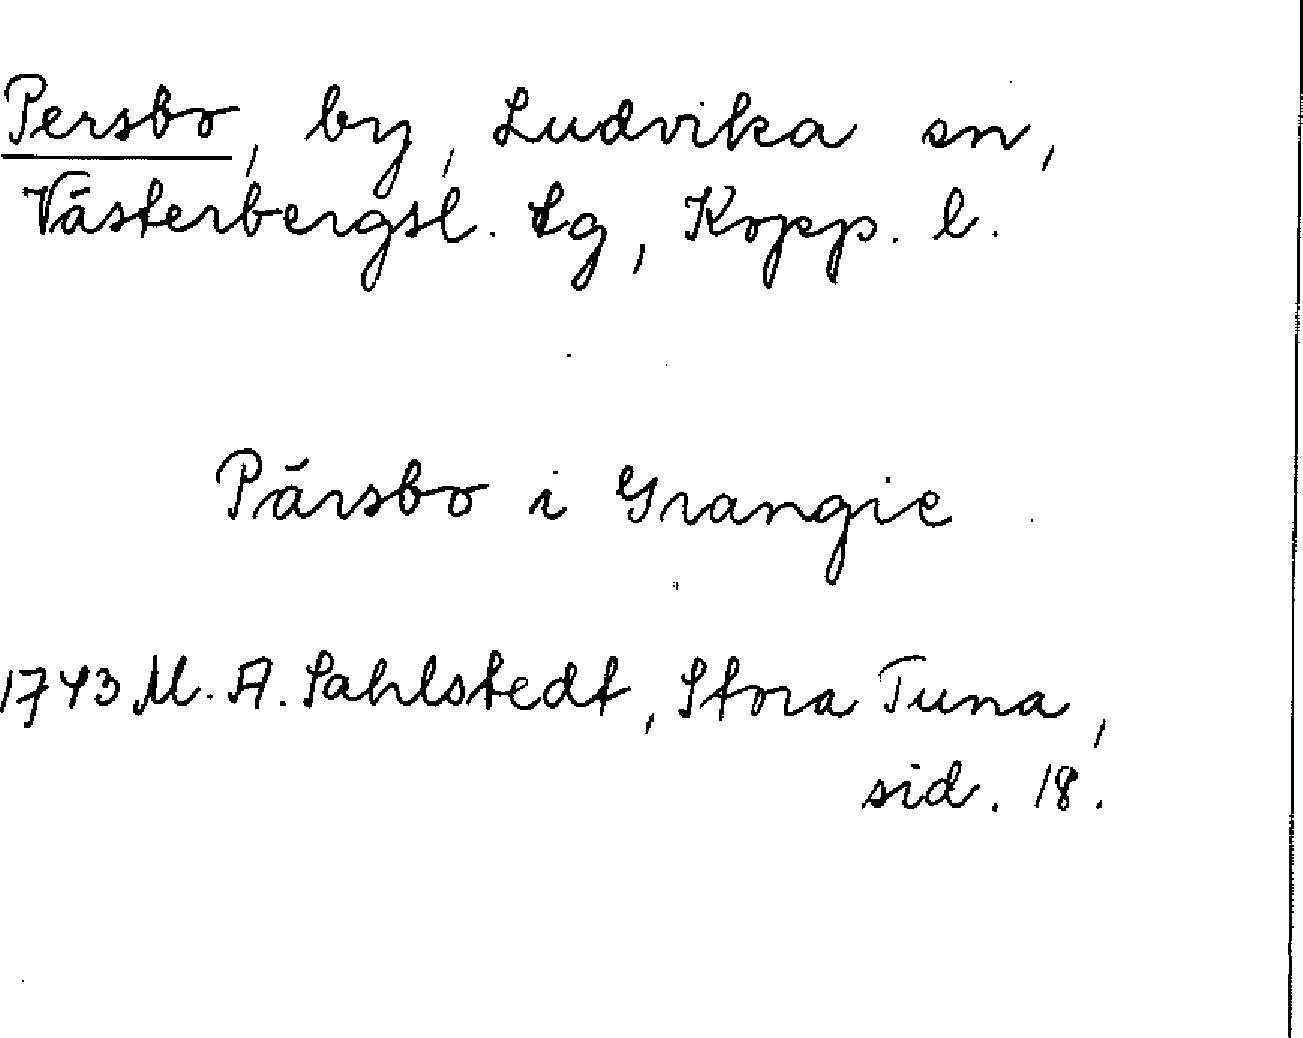 Persbo, by, Ludvika sn,
Västerbergsl. tg, Kopp. l.
Pärsbo i Grangie
1743 M. A. Sahlstedt, Stora Tuna,
sid. 18.